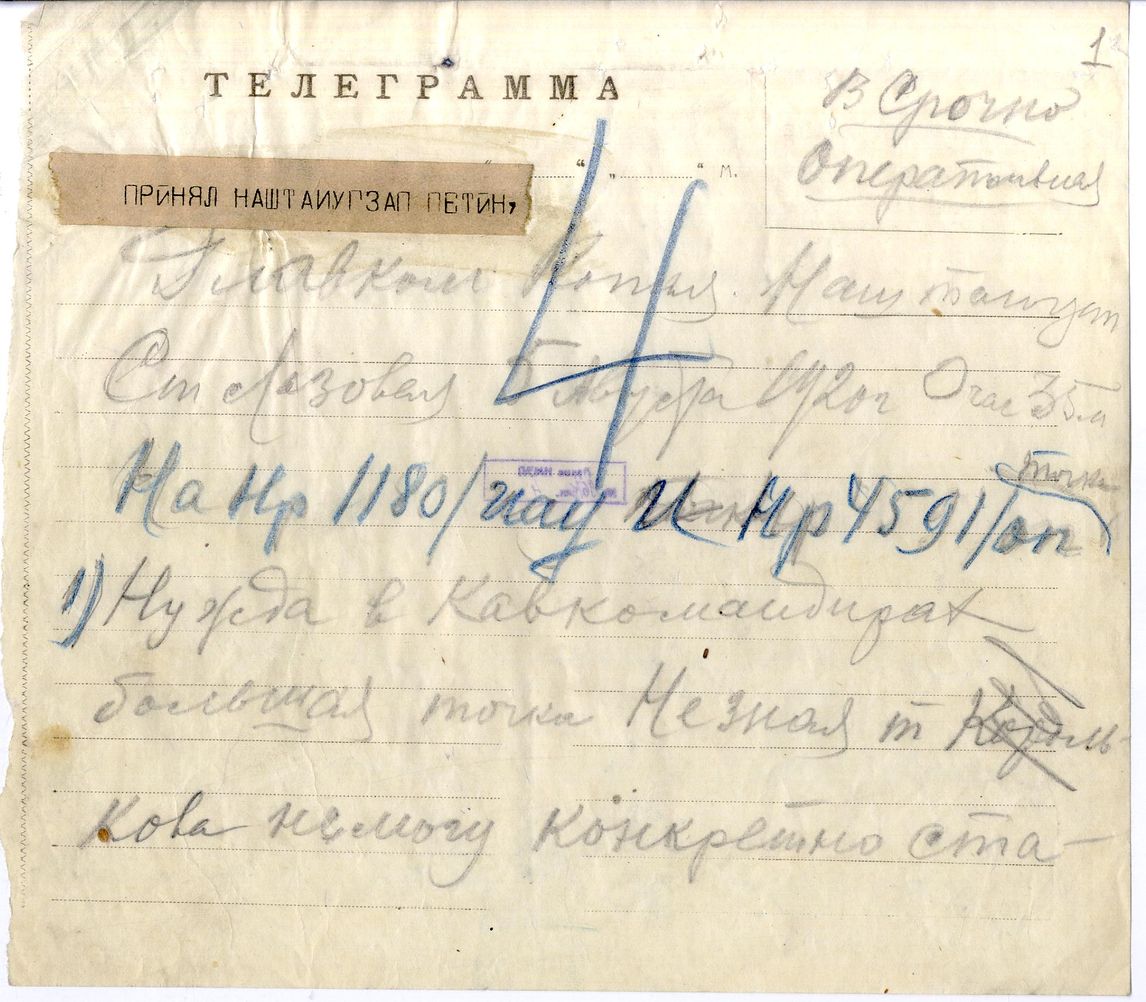 1
ТЕЛЕГРАММА
В Срочно
Оперативная
“ “ м.
ПРИНЯЛ НАШТАЙУГЗАП ПЕТИН,
Главком Копия. Наштаюгзап
Ст Лозовая 5 Августа 1920г 0 час 35 м
точка
На Нр 1180/ И Нр 4591/оп
1) Нужда в Кавкомандирах
большая точка Незная т Король-
кова немогу конкретно ста-